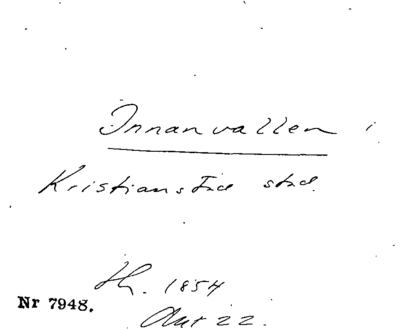 Innanvallen i
Kristianstad stad.
Th. 1854
Nr 7948.
Akt 22.